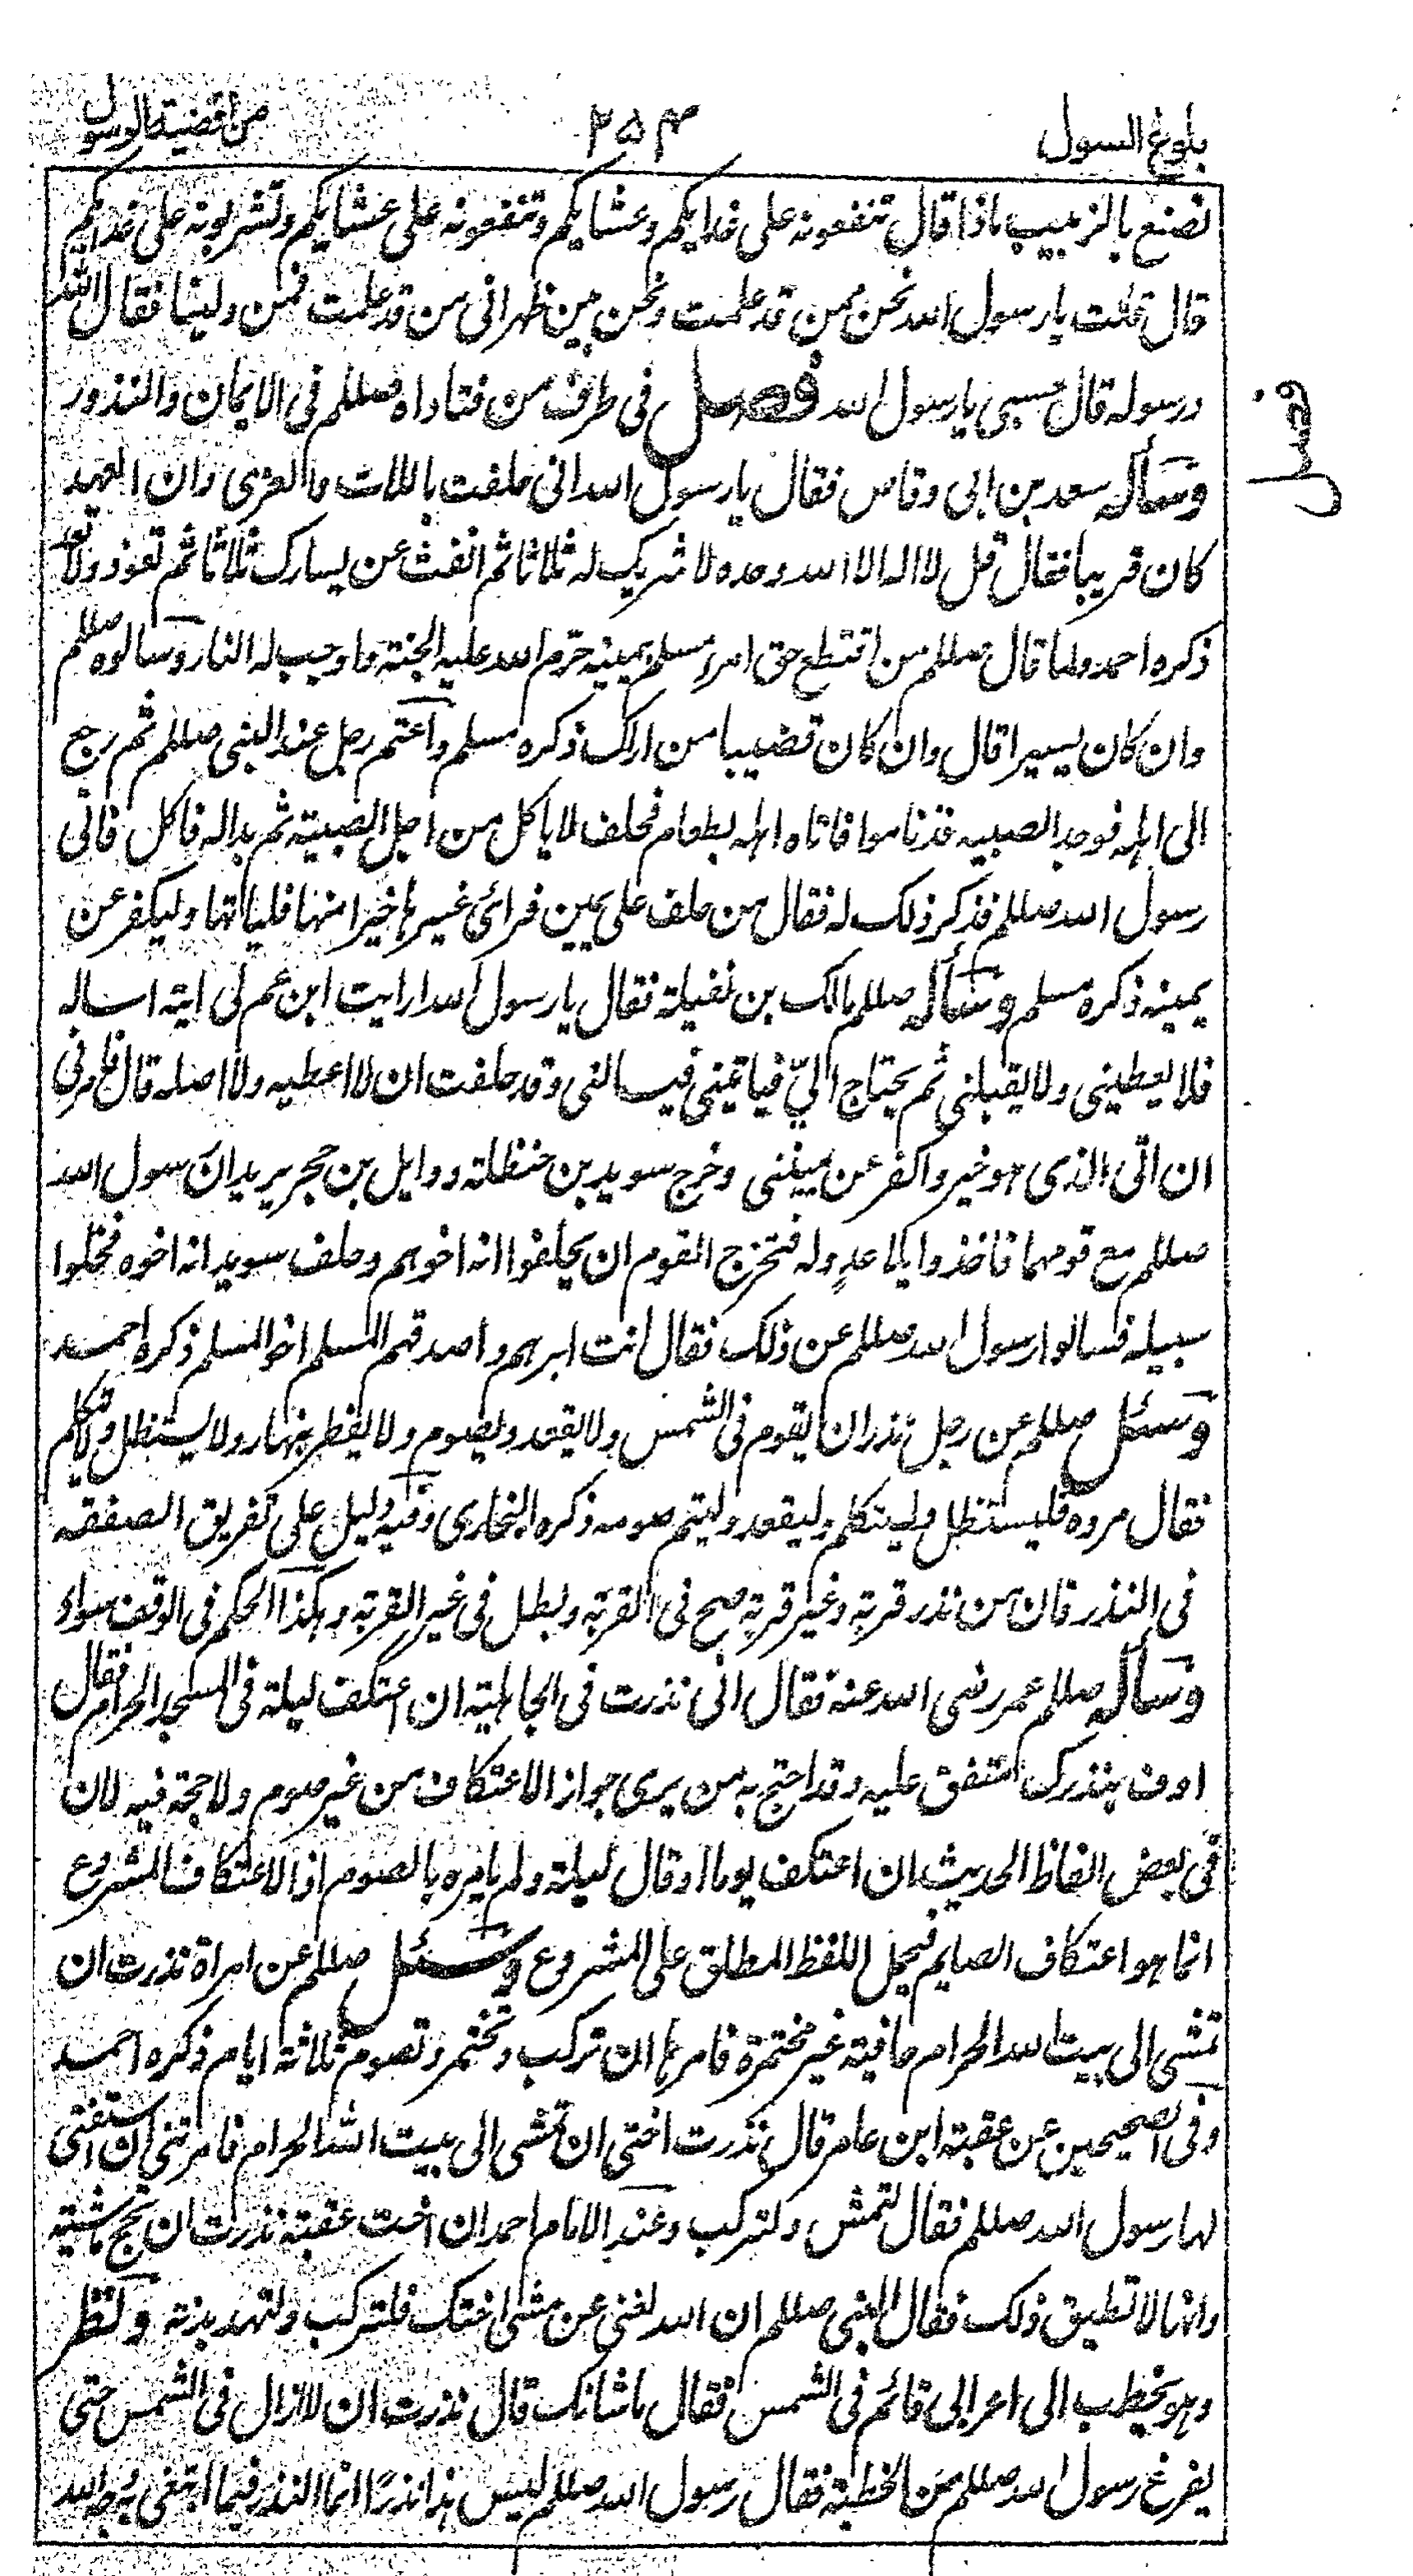 بلوغ السول
۲۵۴
من اقضية الرسول
نصنع بالزبيب ماذا قال تنفعونه على غدايكم وعشايكم وتنفعونه على عشايكم وتشربونه على غدايكم
قال قلت يارسول الله نحن ممن قد علمت ونحن بين ظهرانى من قد علمت فمن ولينا فقال الله
ورسوله قال حسبى يارسول الله فصل فى طرف من فتاواه صللم فى الايمان والنذور
فصل
وسأله سعد بن ابى وقاص فقال يارسول الله انى حلفت باللات والعزى وان العهد
كان قريبا فقال قل لا اله الا الله وحده لا شريك له ثلاثا ثم انفث عن يسارك ثلاثا ثم تعوذ ولا تعد
ذكره احمد ولما قال صللم من اقتطع حق امرء مسلم بيمينه حرّم الله عليه الجنة واوجب له النار وسالوه صللم
وان كان يسيرا قال وان كان قضيبا من اراك ذكره مسلم واعتم رجل عند النبى صللم ثم رجع
الى اهله فوجد الصبيه قد ناموا فاتاه اهله بطعام فحلف لا ياكل من اجل الصبية ثم بداله فاكل فاتى
رسول الله صللم فذكر ذلك له فقال من حلف على يمين فرائ غيرها خيرا منها فلياتها وليكفر عن
يمينه ذكره مسلم وسأله صللم مالك بن نضيلة فقال يا رسول الله ارايت ابن عم لى اتيه اساله
فلا يعطينى ولا يقبلنى ثم يحتاج الىّ فياتينى فيسالنى وقد حلفت ان لا اعطيه ولا اصله قال فامرنى
ان اتى الذى هو خير واكفر عن يمينى وخرج سويد بن حنظلة ووايل بن حجر يريدان رسول الله
صللم مع قومهما فاخذوا وايلا عدوله فتحرج القوم ان يحلفوا انه اخوهم وحلف سويد انه اخوه فخلوا
سبيله فسالوا رسول الله صللم عن ذلك فقال انت ابرهم واصدقهم المسلم اخو المسلم ذكره احمد
وسئل صللم عن رجل نذر ان يقوم فى الشمس ولا يقعد ويصوم ولا يفطر بنهار ولا يستظل ولا يتكلم
فقال مروه فليستظل وليتكلم وليقعد وليتم صومه ذكره البخارى وفيه دليل على تفريق الصفقه
فى النذر فان من نذر قربة وغير قربة صح فى القربة وبطل فى غير القربة وهكذا الحكم فى الوقف سواء
وسأله صللم عمر رضى الله عنه فقال انى نذرت فى الجاهلية ان اعتكف ليلة فى المسجد الحرام فقال
اوف بنذرك متفق عليه وقد احتج به من يرى جواز الاعتكاف من غير صوم ولا حجة فيه لان
فى بعض الفاظ الحديث ان اعتكف يوما اوقال ليلة ولم يامره بالصوم اذ الاعتكاف المشروع
انما هو اعتكاف الصايم فيحمل اللفظ المطلق على المشروع وسئل صللم عن امراة نذرت ان
تمشى الى بيت الله الحرام حافية غير مختمرة فامرها ان تركب وتختمر وتصوم ثلاثة ايام ذكره احمد
وفى الصحيحين عن عقبة ابن عامر قال نذرت اختى ان تمشى الى بيت الله الحرام فامرتنى ان استفتى
لها رسول الله صللم فقال لتمش ولتركب وعند الامام احمد ان اخت عقبة نذرت ان تحج ماشية
وانها لا تطيق ذلك فقال النبى صللم ان الله لغنى عن مشى اختك فلتركب ولتهد بدنة ونظر
وهو يخطب الى اعرابى قائم فى الشمس فقال ماشانك قال نذرت ان لا ازال فى الشمس حتى
يفرغ رسول الله صللم من الخطبة فقال رسول الله صللم ليس هذا نذرًا انما النذر فيما ابتغى به وجه الله